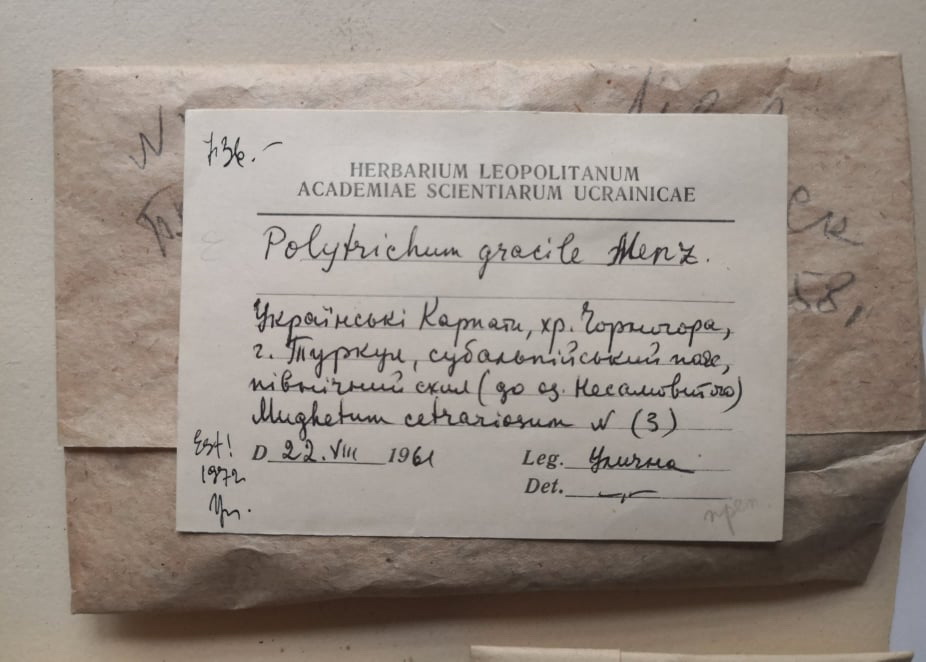 736.-
HERBARIUM LEOPOLITANUM
ACADEMIAE SCIENTIARUM UCRAINICAE
Polytrichum gracile Menz.
Українські Карпати, хр. Чорногора,
г. Туркул, субальпійський пояс,
північний схил (до оз. Несамовитого)
Mughetum cetrariosum N (3)
Est!
1972
D 22.VIII 1961
Leg. Улична
Det. —"—
преп.
58,